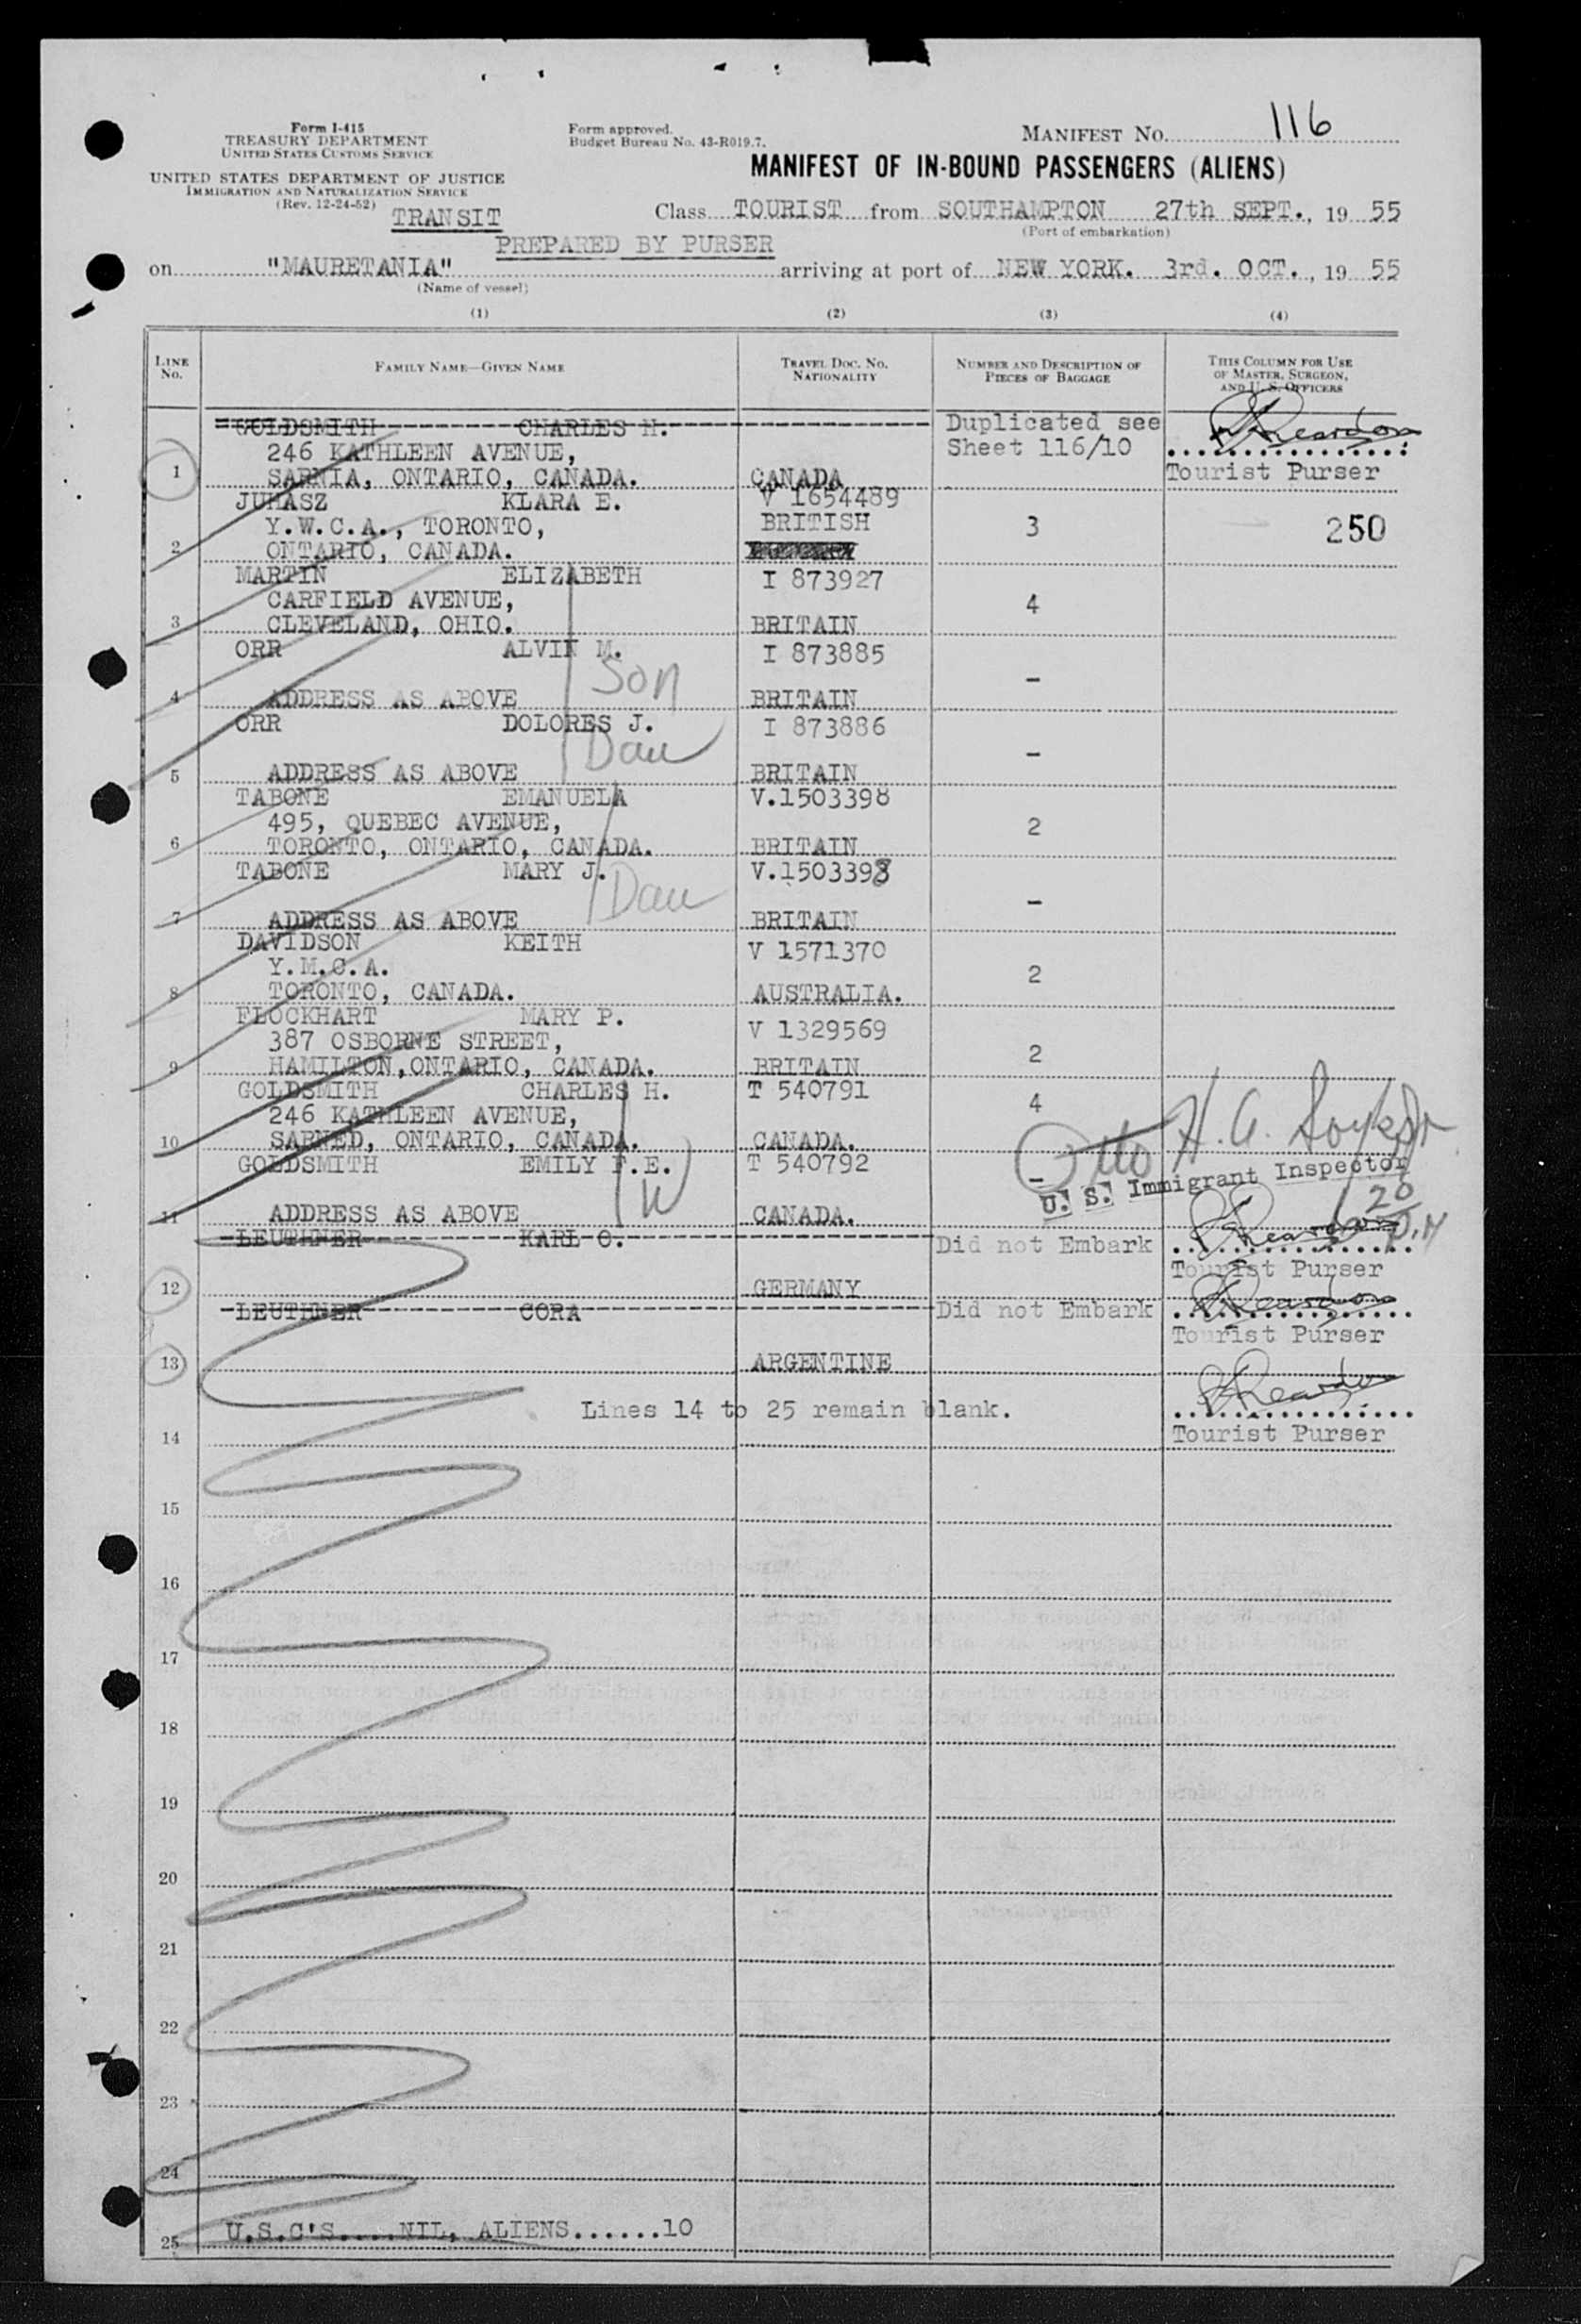 Form I-415
TREASURY DEPARTMENT
UNITED STATES CUSTOMS SERVICE
UNITED STATES DEPARTMENT OF JUSTICE
IMMIGRATION AND NATURALIZATION SERVICE
(Rev. 12-24-52)
TRANSIT
Form approved.
Budget Bureau No. 43-R019.7.
MANIFEST NO. 116
MANIFEST OF IN-BOUND PASSENGERS (ALIENS)
Class TOURIST from SOUTHAMPTON 27th SEPT., 19 55
(Port of embarkation)
PREPARED BY PURSER
on "MAURETANIA" arriving at port of NEW YORK. 3rd. OCT., 19 55
(Name of vessel)
(1) (2) (3) (4)
LINE No. FAMILY NAME—GIVEN NAME TRAVEL DOC. NO. NATIONALITY NUMBER AND DESCRIPTION OF PIECES OF BAGGAGE THIS COLUMN FOR USE OF MASTER, SURGEON, AND U. S. OFFICERS
GOLDSMITH CHARLES H. Duplicated see
246 KATHLEEN AVENUE, Sheet 116/10 Reardon
1 SARNIA, ONTARIO, CANADA. CANADA Tourist Purser
JUHASZ KLARA E. V 1654489
Y.W.C.A., TORONTO, BRITISH 3 250
2 ONTARIO, CANADA.
MARTIN ELIZABETH I 873927
CARFIELD AVENUE, 4
3 CLEVELAND, OHIO. BRITAIN
ORR ALVIN M. I 873885
Son -
4 ADDRESS AS ABOVE BRITAIN
ORR DOLORES J. I 873886
Dau -
5 ADDRESS AS ABOVE BRITAIN
TABONE EMANUELA V.1503398
495, QUEBEC AVENUE, 2
6 TORONTO, ONTARIO, CANADA. BRITAIN
TABONE MARY J. V.1503398
Dau -
7 ADDRESS AS ABOVE BRITAIN
DAVIDSON KEITH V 1571370
Y.M.C.A. 2
8 TORONTO, CANADA. AUSTRALIA.
FLOCKHART MARY P. V 1329569
387 OSBORNE STREET, 2
9 HAMILTON, ONTARIO, CANADA. BRITAIN
GOLDSMITH CHARLES H. T 540791
246 KATHLEEN AVENUE, 4
10 SARNED, ONTARIO, CANADA. CANADA.
GOLDSMITH EMILY F.E. T 540792
W -
U. S. Immigrant Inspector
11 ADDRESS AS ABOVE CANADA.
LEUTHNER KARL O. Did not Embark Reardon
Tourist Purser
12 GERMANY
LEUTHNER CORA Did not Embark Reardon
Tourist Purser
13 ARGENTINE
Lines 14 to 25 remain blank. Reardon
14 Tourist Purser
15
16
17
18
19
20
21
22
23
24
25 U.S.C'S....NIL, ALIENS......10